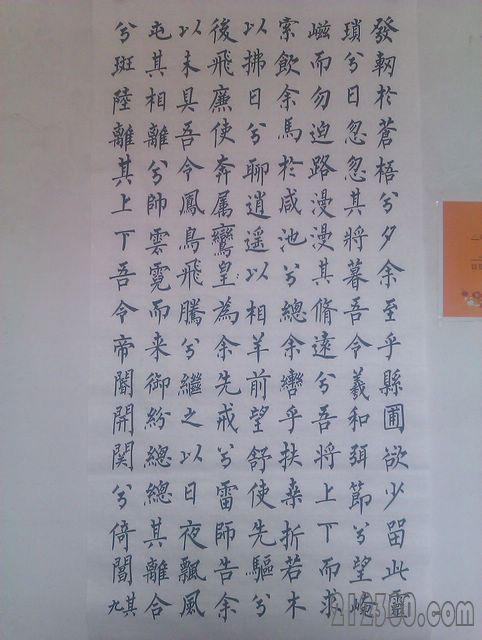 發軔於蒼梧兮夕余至乎縣圃欲少留此靈
瑣兮日忽忽其將暮吾令羲和弭節兮望崦
嵫而勿迫路漫漫其脩遠兮吾將上下而求
索飲余馬於咸池兮總余轡乎扶桒折若木
以拂日兮聊逍遥以相羊前望舒使先驅兮
後飛廉使奔属鸞皇為余先戒兮雷師告余
以未具吾令鳳鳥飛騰兮繼之以日夜飄風
屯其相離兮帥雲霓而来御紛總總其離合
兮斑陸離其上下吾令帝閽開関兮倚閶
其九
212300.com